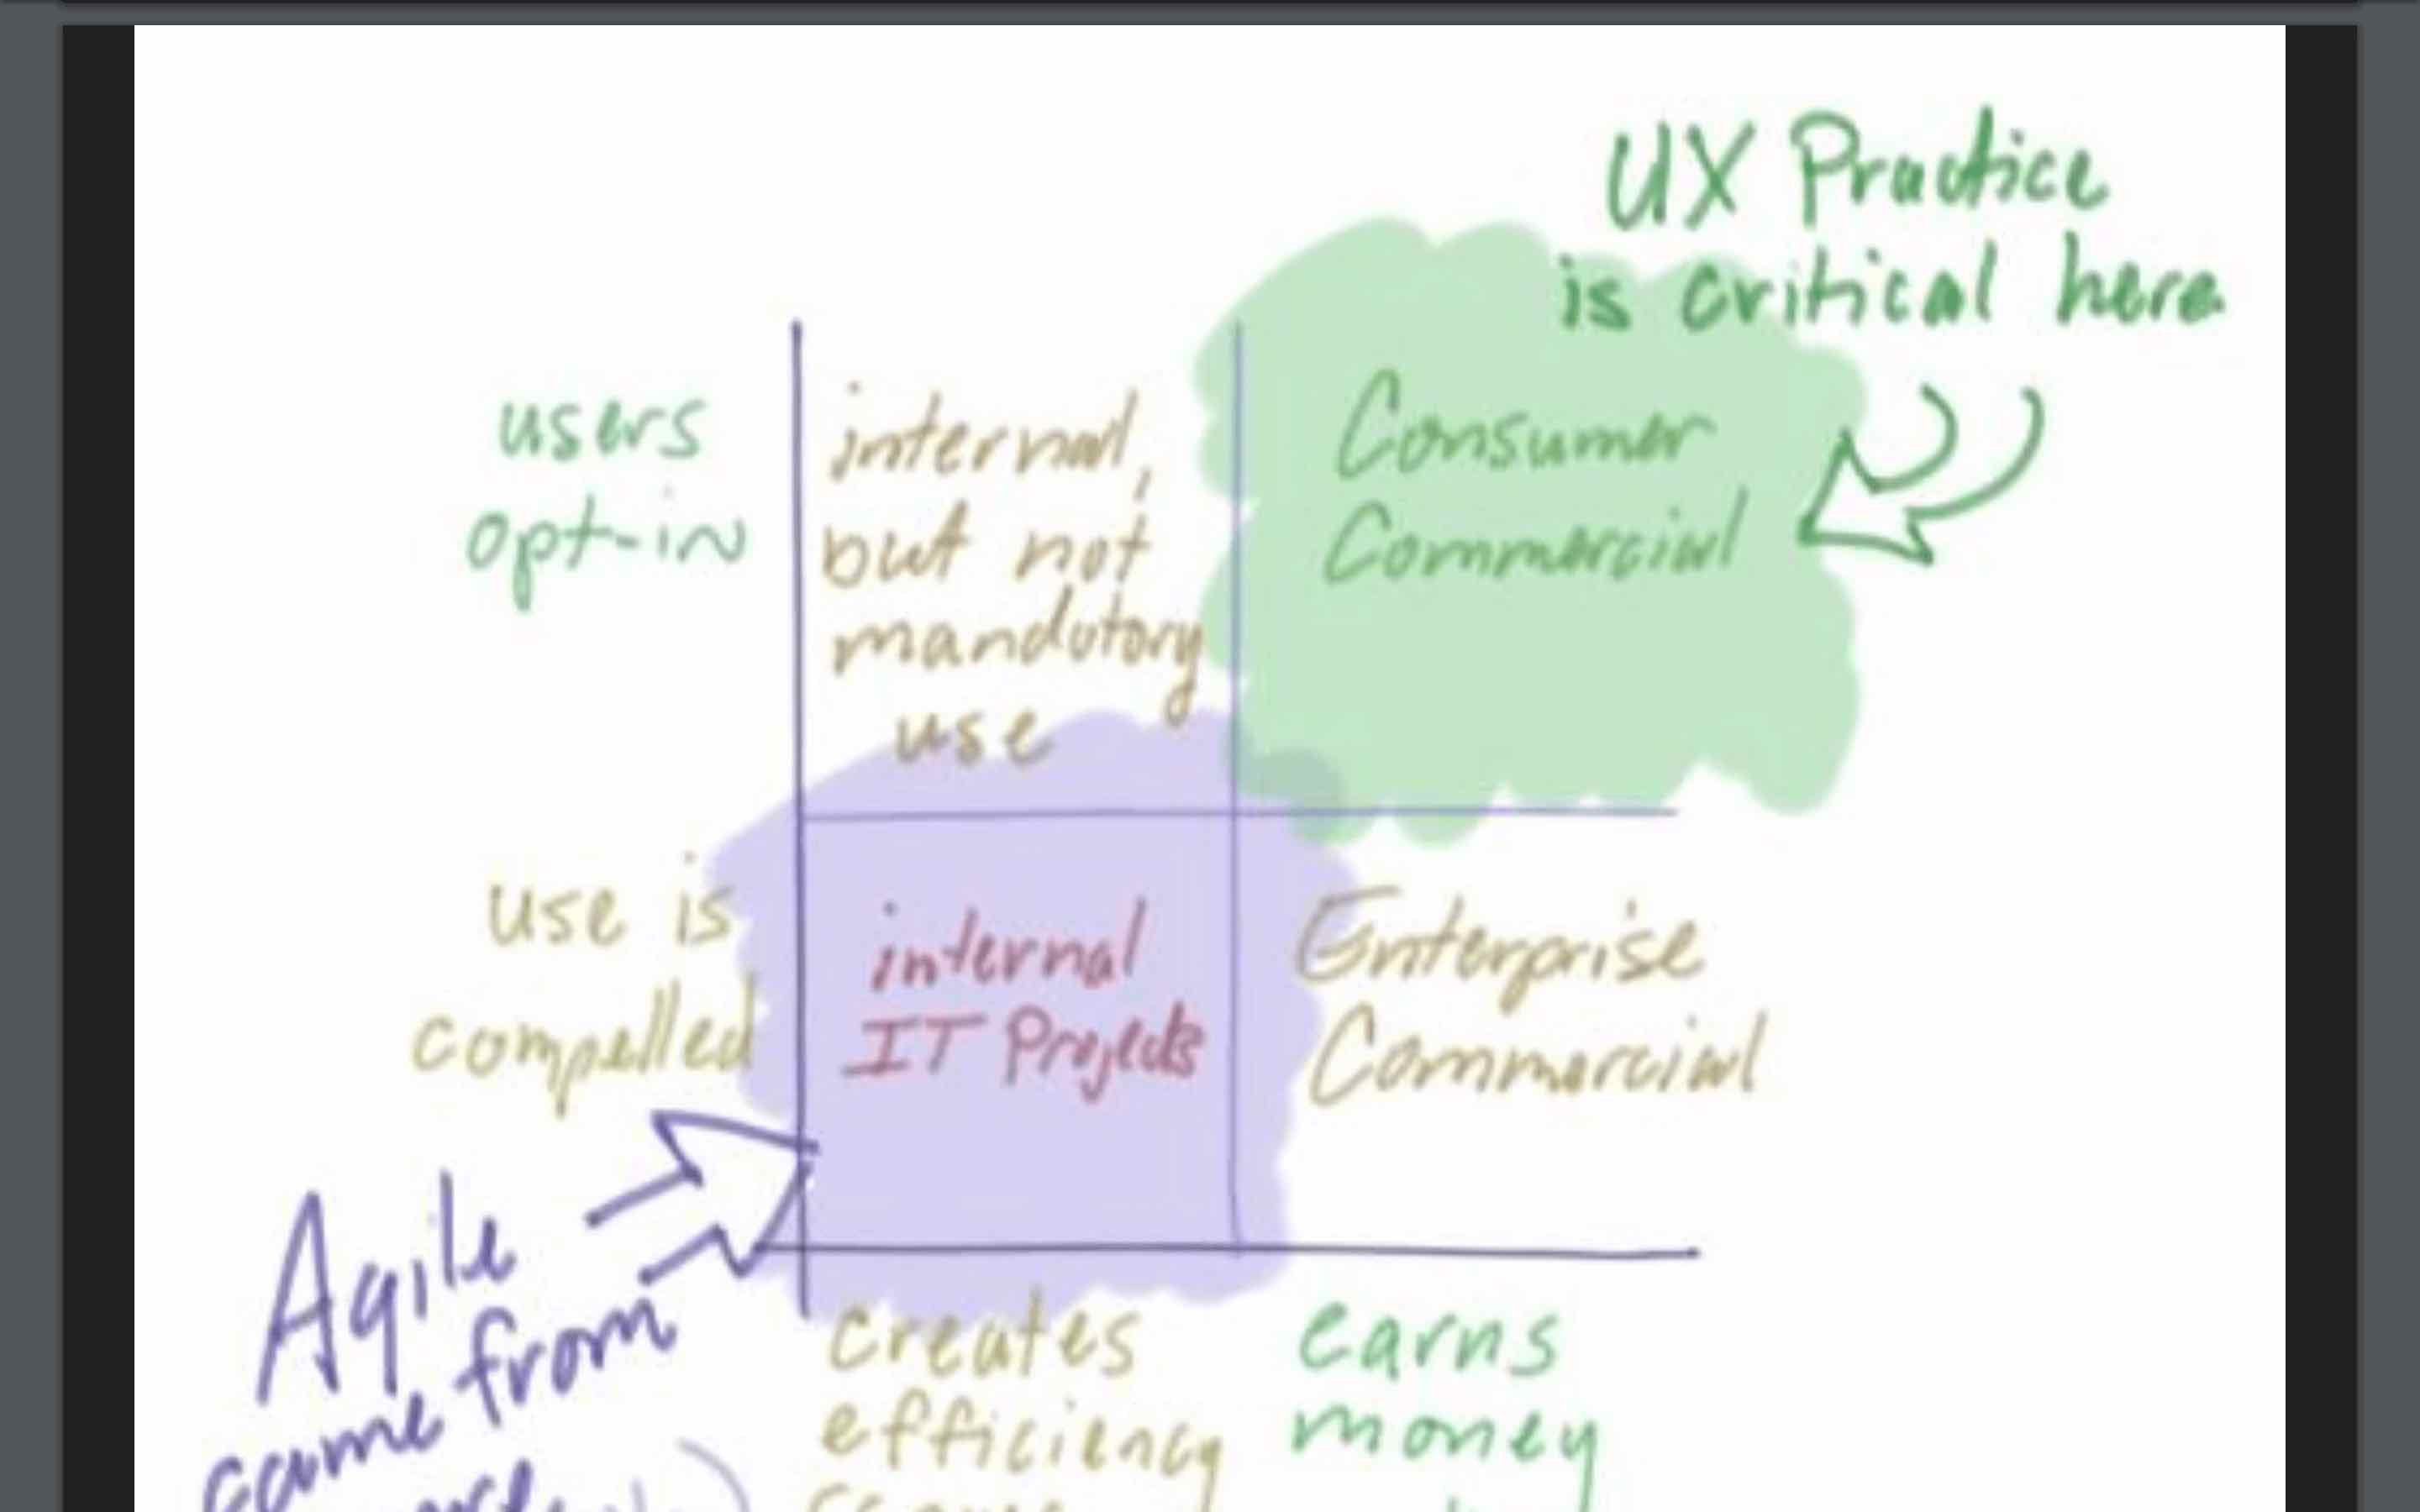 UX Practice
is critical here
users
opt-in
internal,
but not
mandatory
use
Consumer
Commercial
use is
compelled
internal
IT Projects
Enterprise
Commercial
Agile
came from
creates
efficiency
earns
money